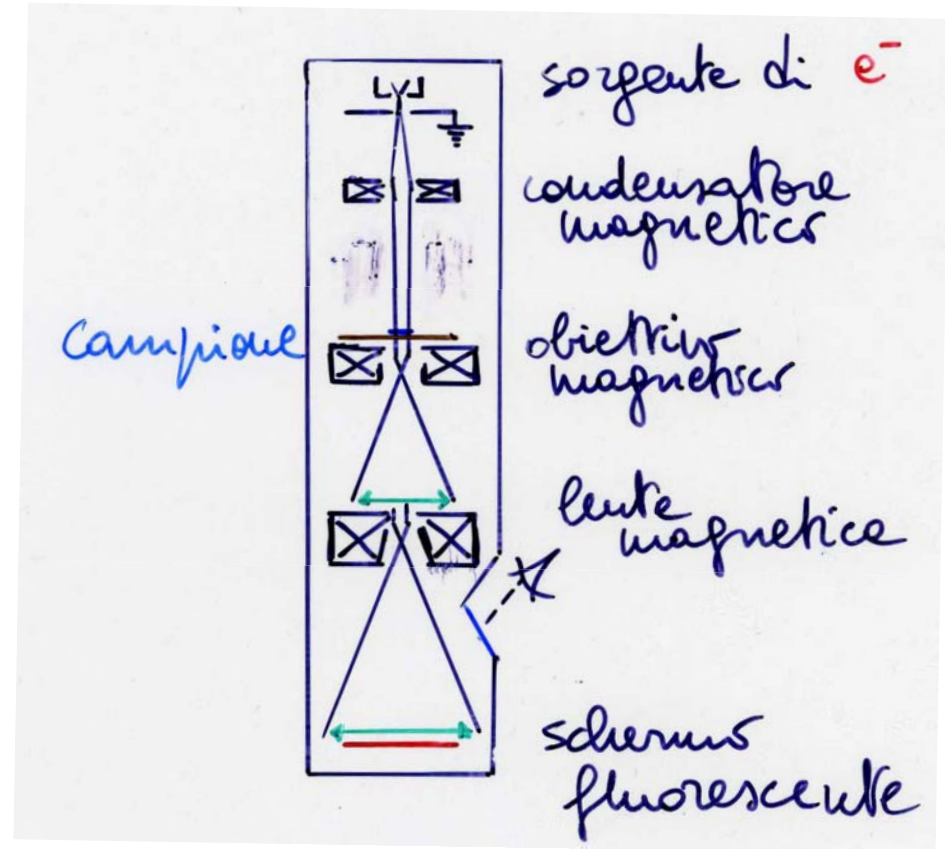 sorgente di e⁻
condensatore
magnetico
Campione
obiettivo
magnetico
lente
magnetica
schermo
fluorescente